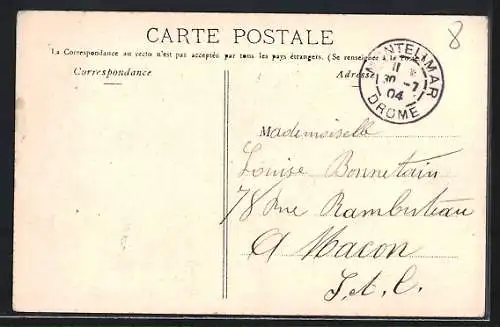 CARTE POSTALE
La Correspondance au recto n'est pas acceptée par tous les pays étrangers. (Se renseigner à la
Correspondance
Adresse
MONTELIMAR
11
30 -7
04
DROME
8
Mademoiselle
Louise Bonnetain
78 Rue Rambuteau
A Macon
S. et. L.